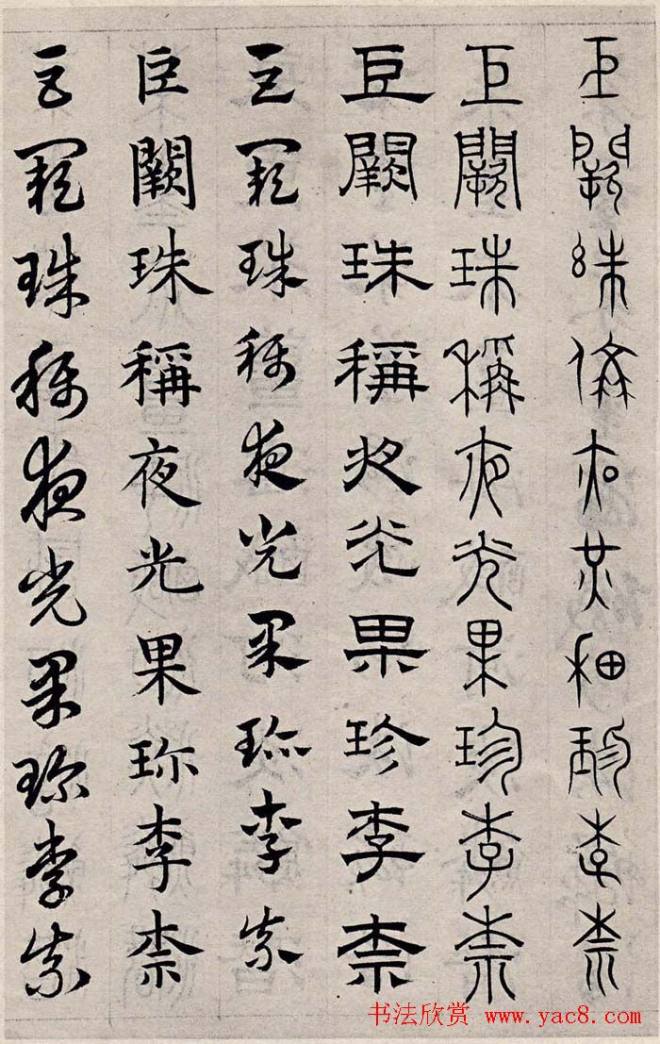 巨闕珠稱夜光果珍李柰
巨闕珠稱夜光果珍李柰
巨闕珠稱夜光果珍李柰
巨闕珠稱夜光果珍李柰
巨闕珠稱夜光果珎李柰
巨闕珠稱夜光果珎李柰
书法欣赏 www.yac8.com